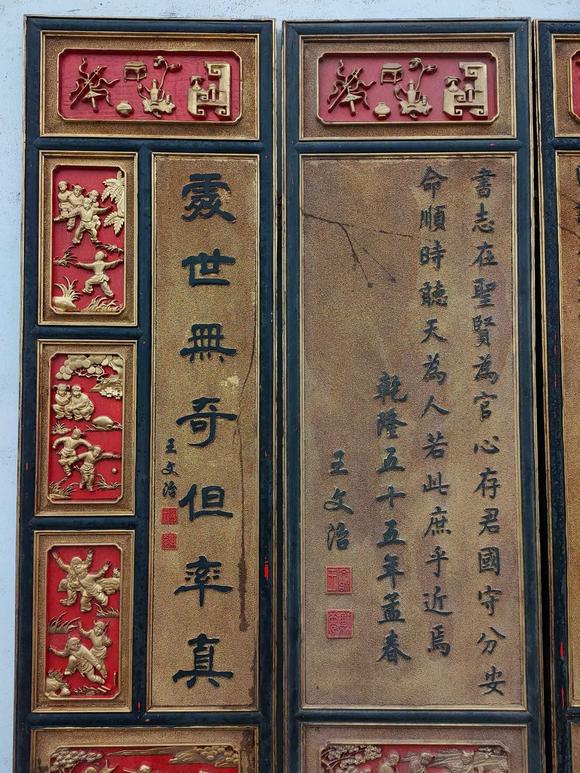 書志在聖賢為官心存君國守分安
命順時聽天為人若此庶乎近焉
乾隆五十五年孟春
王文治
處世無奇但率真
王文治